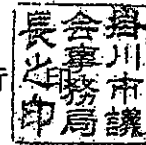 掛川市議
会事務局
長之印
印